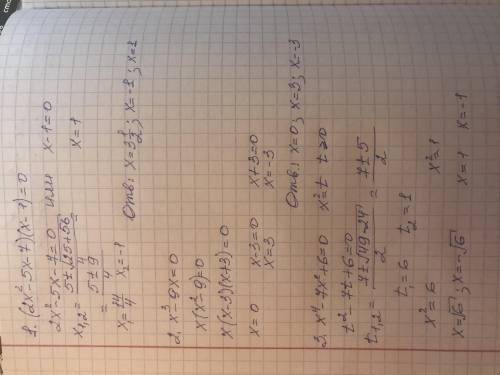 1. (2x²-5x-7)(x-1)=0
2x²-5x-7=0 или x-1=0
x₁,₂ = (5±√(25+56))/4 = x=1
(5±9)/4
x₁=14/4 x₂=-1 Отв: x=3 1/2; x=-1; x=1
2. x³-9x=0
x(x²-9)=0
x(x-3)(x+3)=0
x=0 x-3=0 x+3=0
x=3 x=-3
Отв: x=0; x=3; x=-3
3. x⁴-7x²+6=0 x²=t t≥0
t²-7t+6=0
t₁,₂ = (7±√(49-24))/2 = (7±5)/2
t₁=6 t₂=1
x²=6 x²=1
x=√6; x=-√6 x=1 x=-1